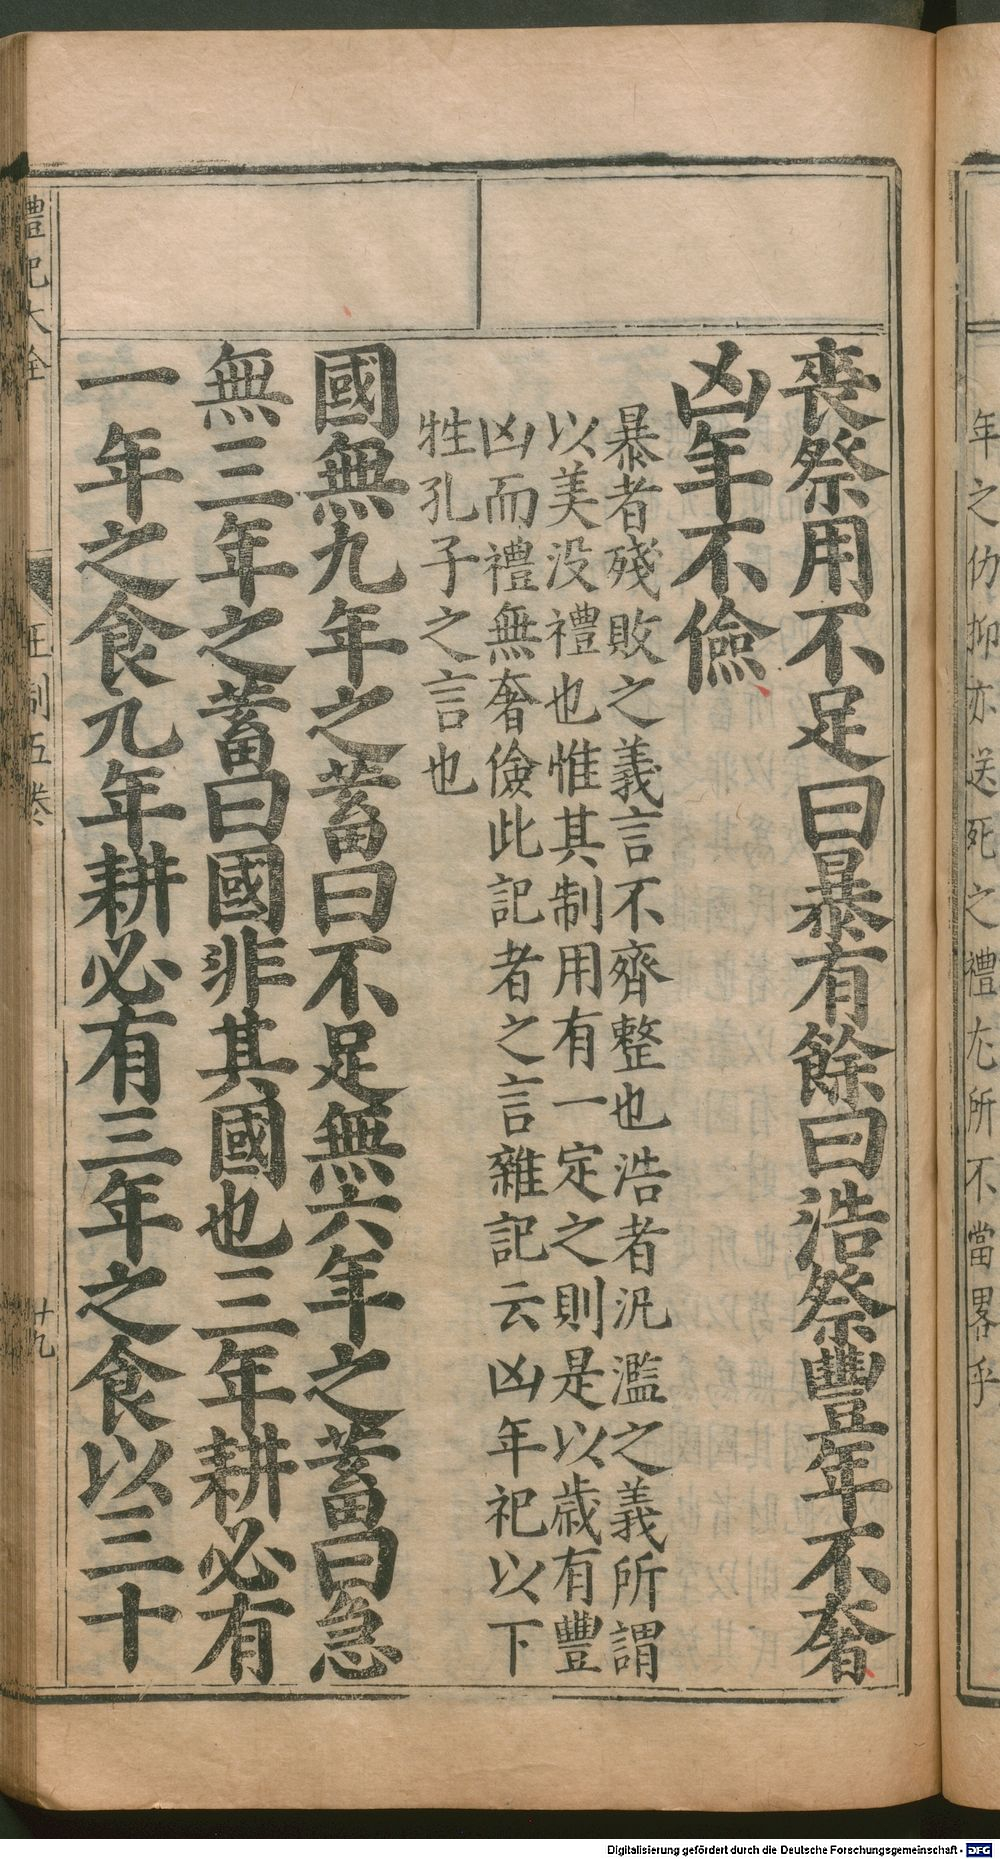 年之仂抑亦送死之禮尤所不當畧乎
喪祭用不足曰暴有餘曰浩祭豐年不奢
凶年不儉
暴者殘敗之義言不齊整也浩者況濫之義所謂
以美没禮也惟其制用有一定之則是以歲有豐
凶而禮無奢儉此記者之言雜記云凶年祀以下
牲孔子之言也
國無九年之蓄曰不足無六年之蓄曰急
無三年之蓄曰國非其國也三年耕必有
一年之食九年耕必有三年之食以三十
禮記大全 王制五卷 廿九
Digitalisierung gefördert durch die Deutsche Forschungsgemeinschaft - DFG